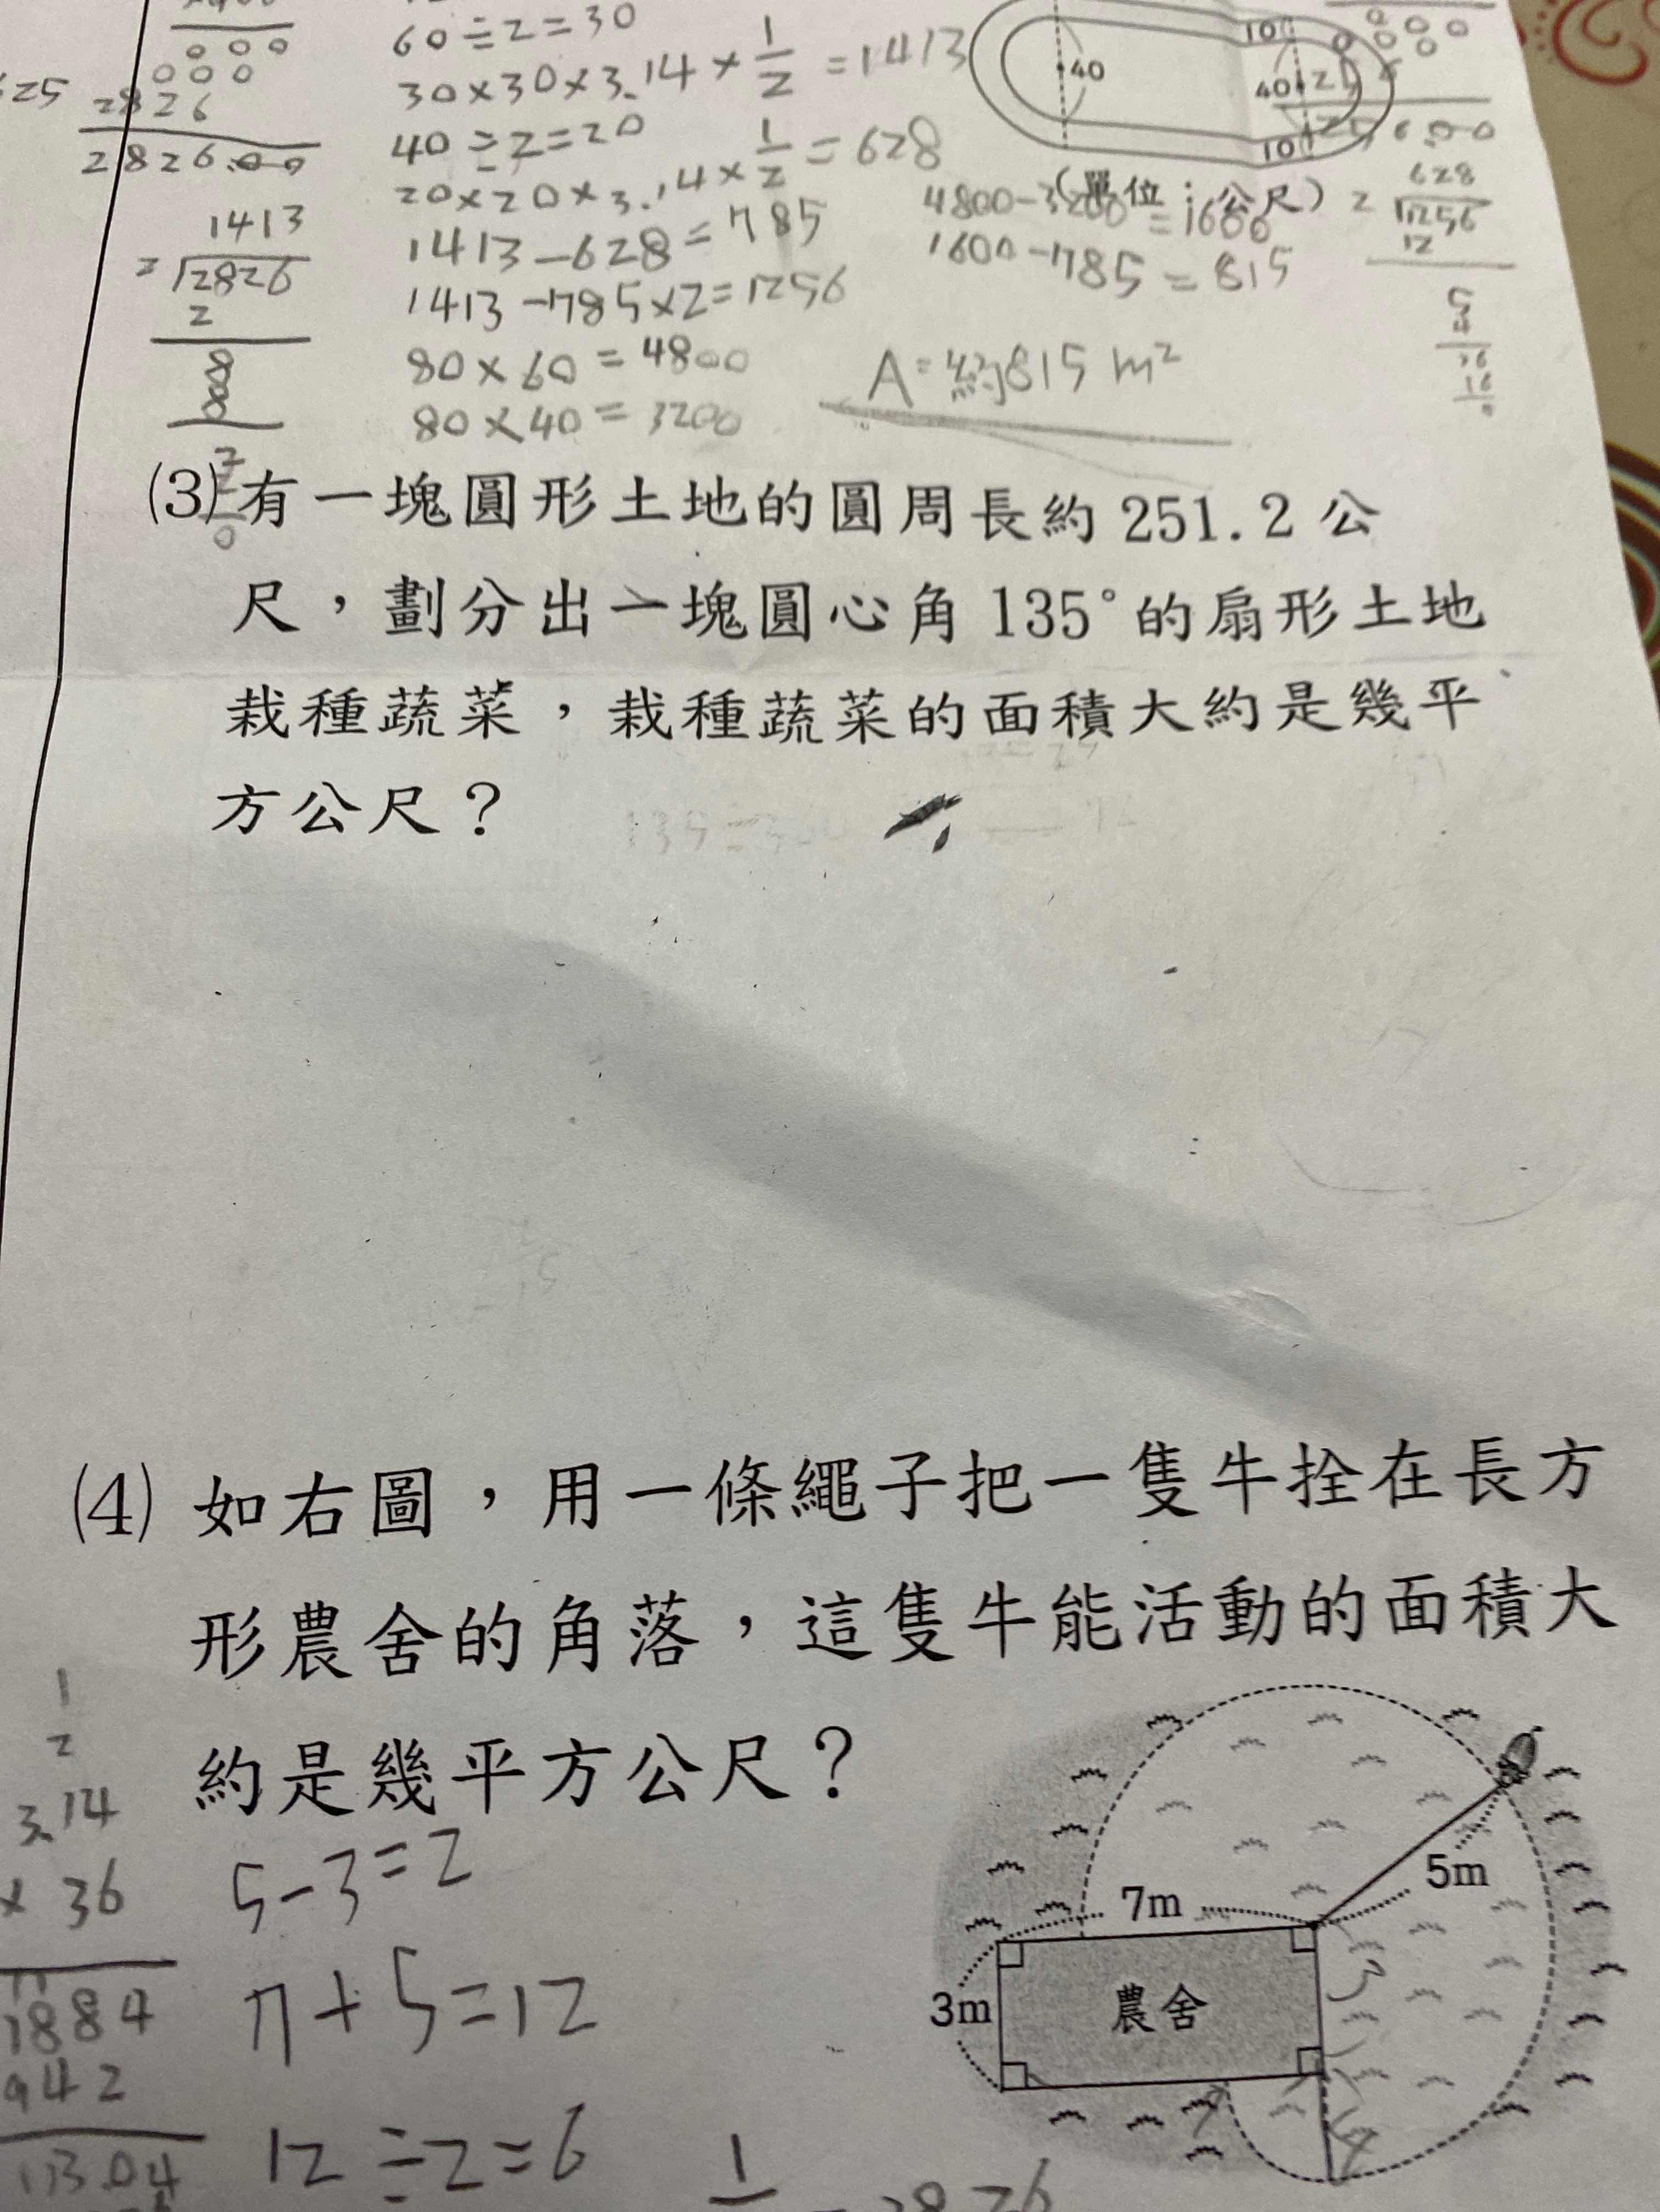 60÷2=30
30×30×3.14×1/2=1413
40÷2=20
20×20×3.14×1/2=628
1413-628=785
1413-785×2=1256
80×60=4800
80×40=3200
2826
2826.00
1413
2 2826
2
8
8
40
10
40
10
(單位:公尺)
4800-3200=1600
1600-785=815
A=約815 m²
628
2 1256
12
(3)有一塊圓形土地的圓周長約251.2公
尺,劃分出一塊圓心角135°的扇形土地
栽種蔬菜,栽種蔬菜的面積大約是幾平
方公尺?
(4) 如右圖,用一條繩子把一隻牛拴在長方
形農舍的角落,這隻牛能活動的面積大
約是幾平方公尺?
5-3=2
7+5=12
12÷2=6
1
2
3.14
× 36
1884
942
113.04
7m
5m
3m
農舍